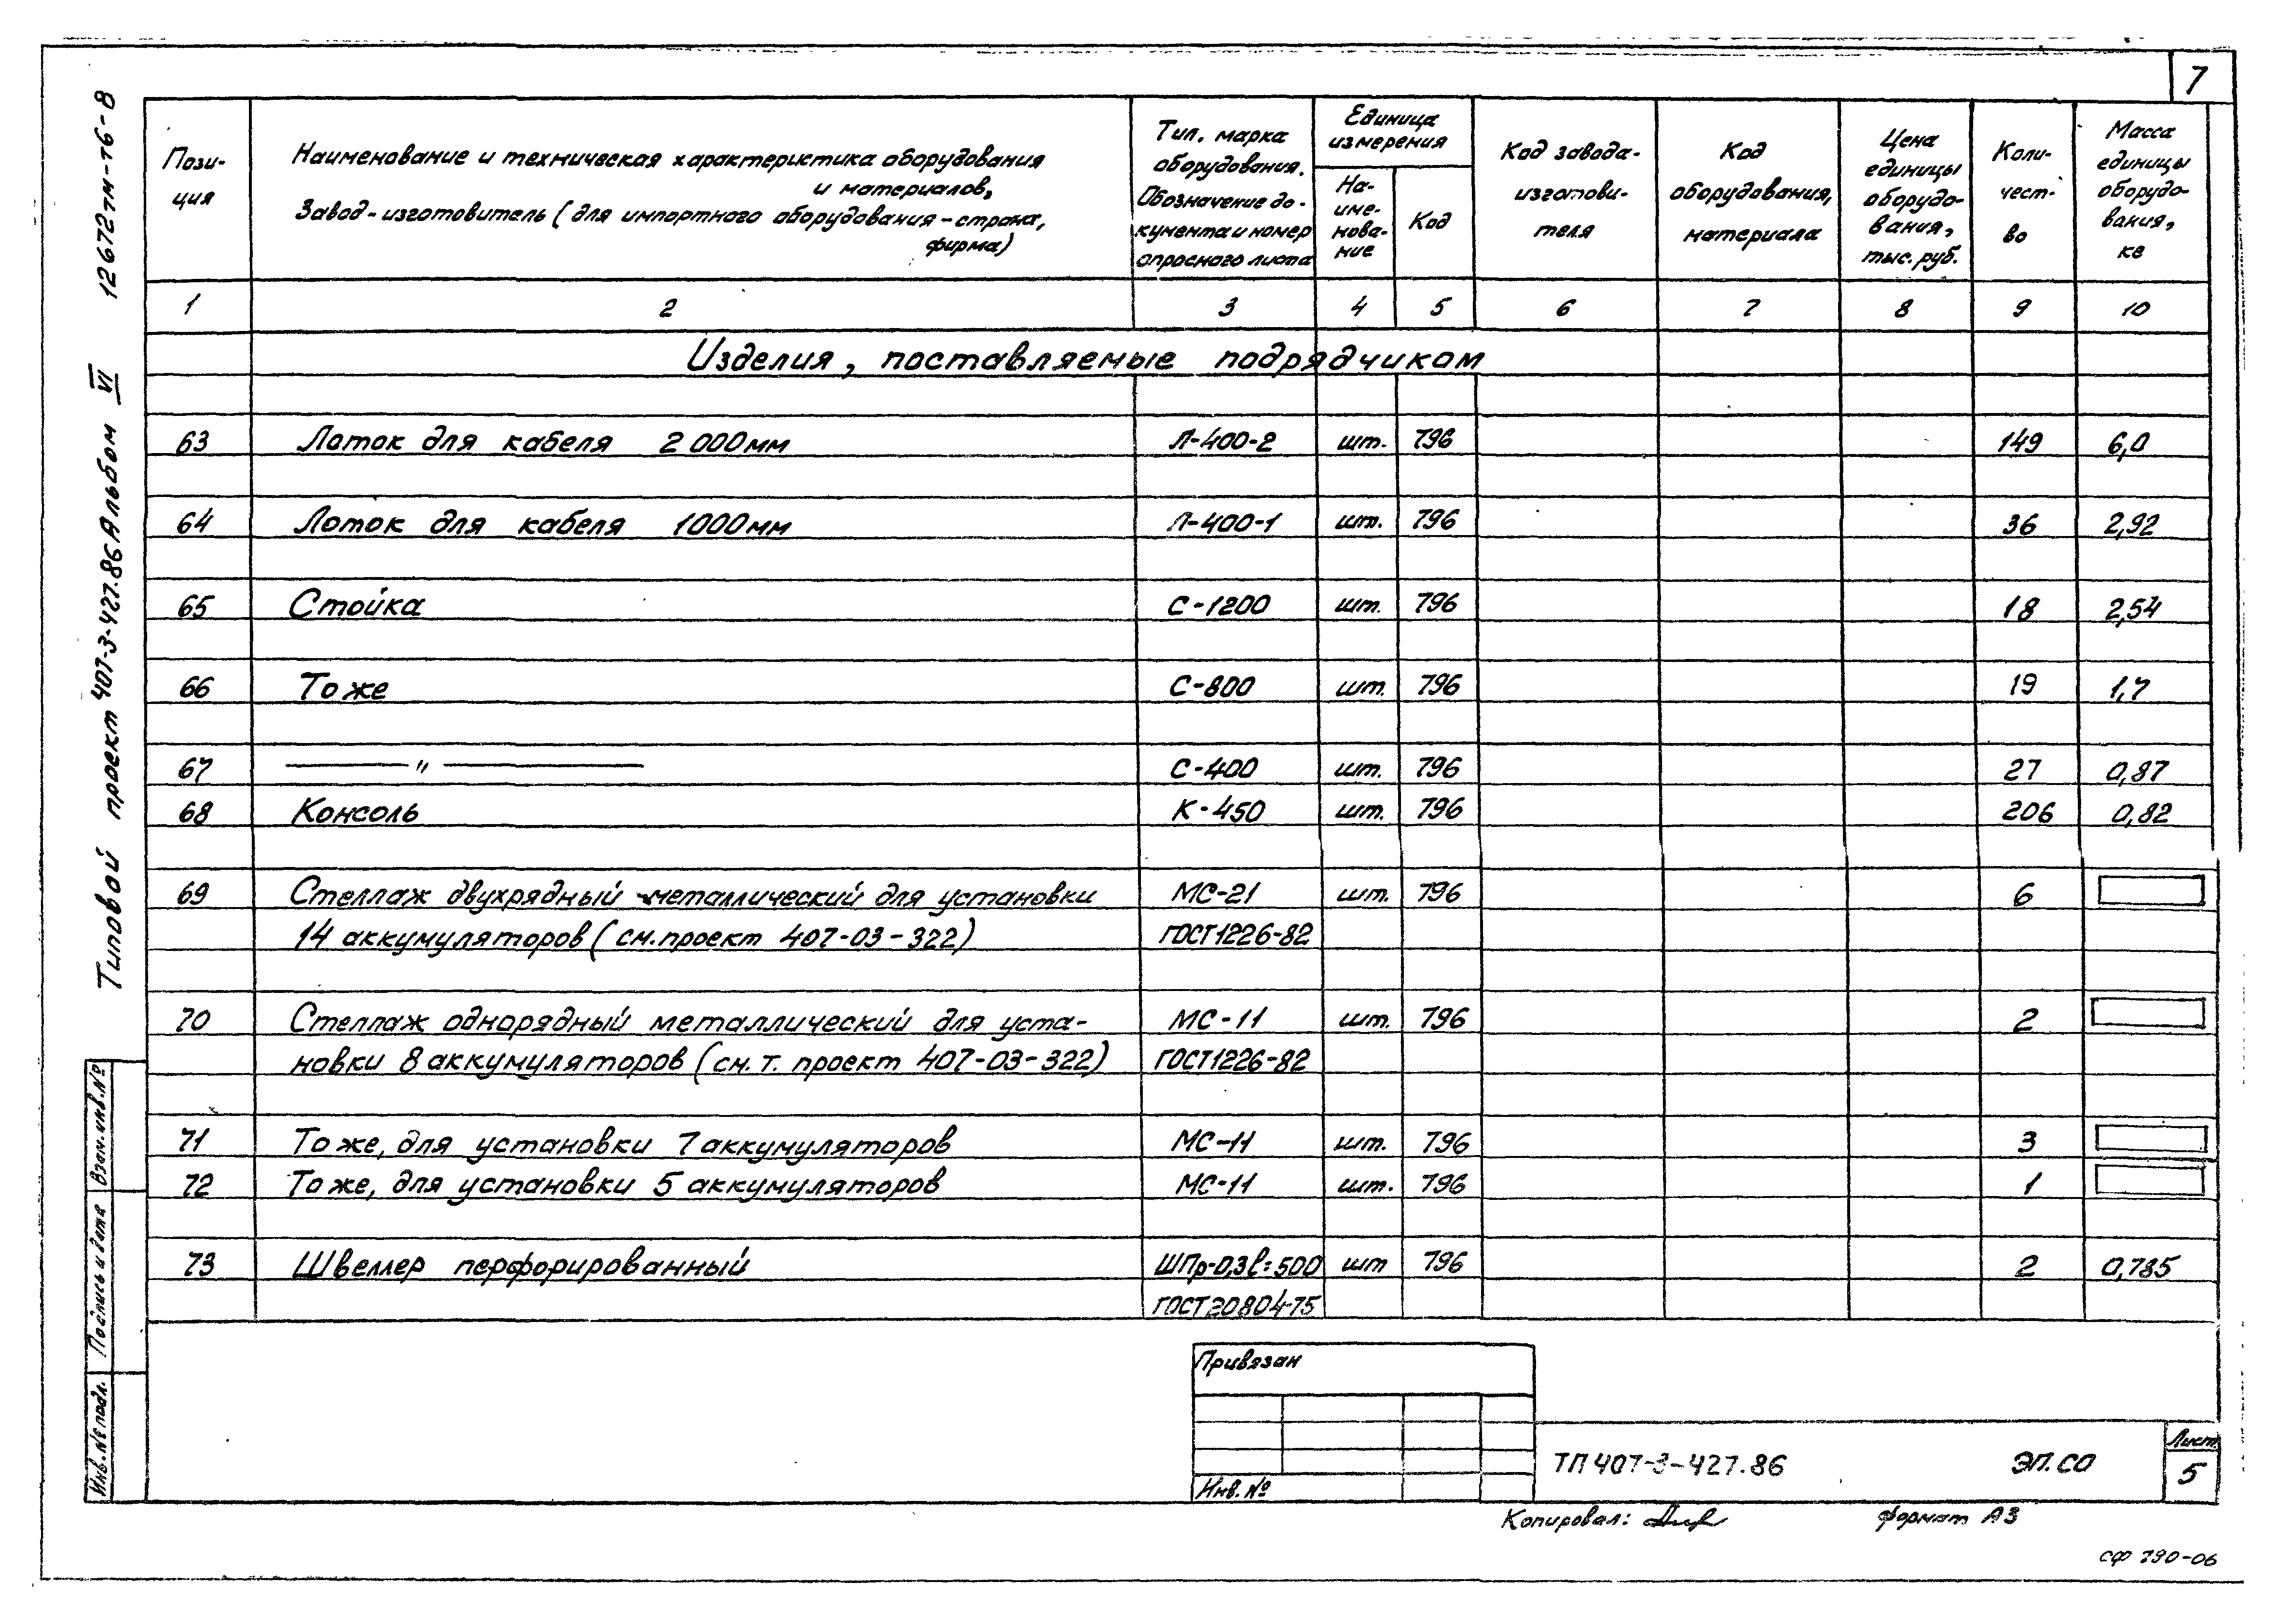 7
12672тм-т6-8
Типовой проект 407-3-427.86 Альбом VI
Пози-
ция
Наименование и техническая характеристика оборудования
и материалов,
Завод-изготовитель (для импортного оборудования-страна,
фирма)
Тип, марка
оборудования.
Обозначение до-
кумента и номер
опросного листа
Единица
измерения
На-
име-
нова-
ние
Код
Код завода-
изготови-
теля
Код
оборудования,
материала
Цена
единицы
оборудо-
вания,
тыс. руб.
Коли-
чест-
во
Масса
единицы
оборудо-
вания,
кг
1 2 3 4 5 6 7 8 9 10
Изделия, поставляемые подрядчиком
63 Лоток для кабеля 2000мм Л-400-2 шт. 796 149 6,0
64 Лоток для кабеля 1000мм Л-400-1 шт. 796 36 2,92
65 Стойка С-1200 шт. 796 18 2,54
66 То же С-800 шт. 796 19 1,7
67 —— " —— С-400 шт. 796 27 0,87
68 Консоль К-450 шт. 796 206 0,82
69 Стеллаж двухрядный металлический для установки МС-21 шт. 796 6
14 аккумуляторов (см. проект 407-03-322) ГОСТ1226-82
70 Стеллаж однорядный металлический для уста- МС-11 шт. 796 2
новки 8 аккумуляторов (см. т. проект 407-03-322) ГОСТ1226-82
71 То же, для установки 7 аккумуляторов МС-11 шт. 796 3
72 То же, для установки 5 аккумуляторов МС-11 шт. 796 1
73 Швеллер перфорированный ШПр-0,3 l=500 шт 796 2 0,785
ГОСТ20804-75
Взам. инв. №
Подпись и дата
Инв. № подл.
Привязан
Инв. №
ТП 407-3-427.86 ЭП.СО
Лист
5
Копировал:
формат А3
СФ 790-06